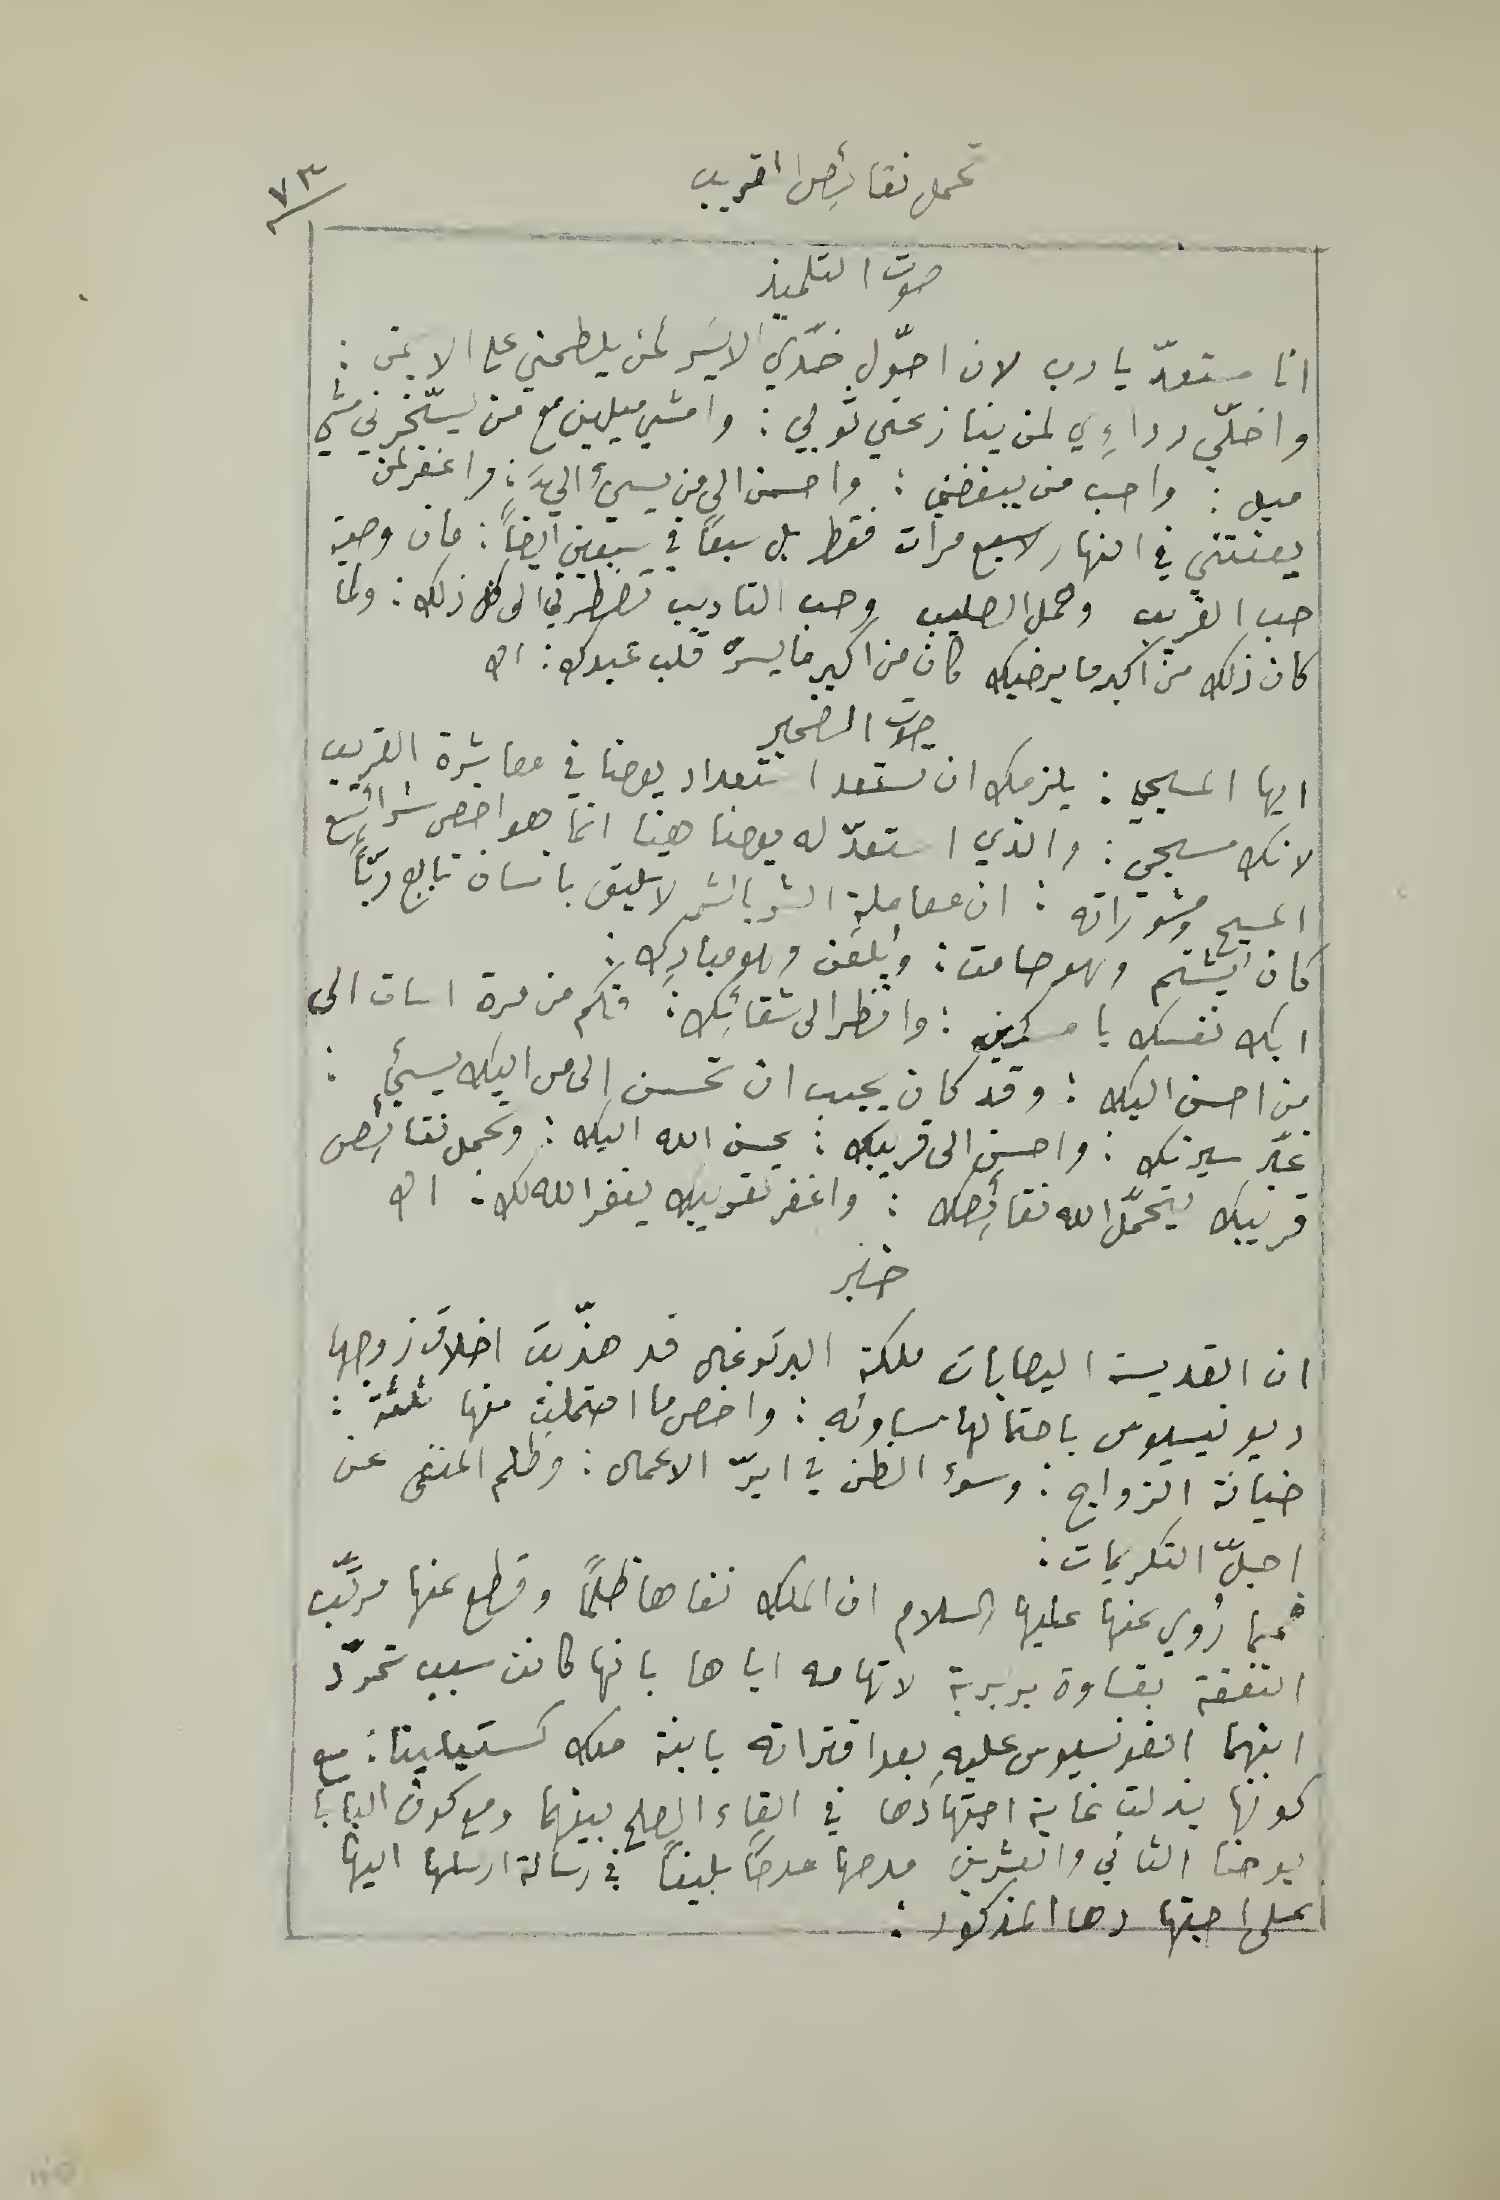 تحمل نقائص القريب
٧٣
صوت التلميذ
انا مستعدّ يا رب لان احوّل خدّي الايسر لمن يلطمني على الايمن :
واخلّي رداءِي لمن ينازعني ثوبي : وامشي ميلين مع من يسخّرني مشي
ميل : واحب من يبغضني : واحسن الى من يسيءُ اليَّ : واغفر لمن
يعنتني في النهار لا سبع مرات فقط بل سبعًا في سبعين ايضاً : فان وصية
حب القريب وحمل الصليب وحب التاديب تضطرني الى كل ذلك : ولما
كان ذلك من اكبر ما يرضيك كان من اكبر ما يسرّ قلب عبدك : اﻫ
صوت الضمير
ايها المسيحي : يلزمك ان تستعد استعداد يوحنا في معاشرة القريب
لانك مسيحي : والذي استعدّ له يوحنا هينا انما هو اخص شرائع
المسيح ومشوراته : ان معاملة الشر بالشر لا تليق بانسان تابع ربّاً
كان يُشتم وهو صامت : ويُلعَن وهو مبارِك :
ابك نفسك يا مسكين : وانظر الى شقائِك : فكم من مرة اسات الى
من احسن اليك : وقد كان يجب ان تحسن الى من اليك يسيءُ :
غيّر سيرتك : واحسن الى قريبك : يحسن الله اليك : وتحمل نقائِص
قريبك يتحمّل الله نقائِصك : واغفر لقريبك يغفر الله لك : اﻫ
خبر
ان القديسة اليصابات ملكة البرتوغال قد هذّبت اخلاق زوجها
ديونيسيوس باحتمالها مساوئه : واخص ما احتملت منها ثلثة :
خيانة الزواج : وسوء الظن في ابرّ الاعمال : وظلم المنفى عن
اجلّ التكريمات :
فمما رُوي عنها عليها السلام ان الملك نفاها ظلمًا وقطع عنها مرتّب
النفقة بقساوة بربرية لاتهامه اياها بانها كانت سبب تمرّد
ابنهما الفونسيوس عليهِ بعد اقترانه بابنة ملك كستيلينا : مع
كونها بذلت غاية اجتهادها في القاء الصلح بينهما ومع كون البابا
يوحنا الثاني والعشرين مدحها مدحًا بليغاً في رسالة ارسلها اليها
على اجتهادها المذكور :